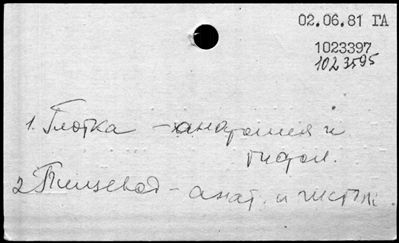 02.06.81 ГА
1023397
1023595
1. Глотка - анатомия и
гистол.
2 Пищевод - анат. и гистол.